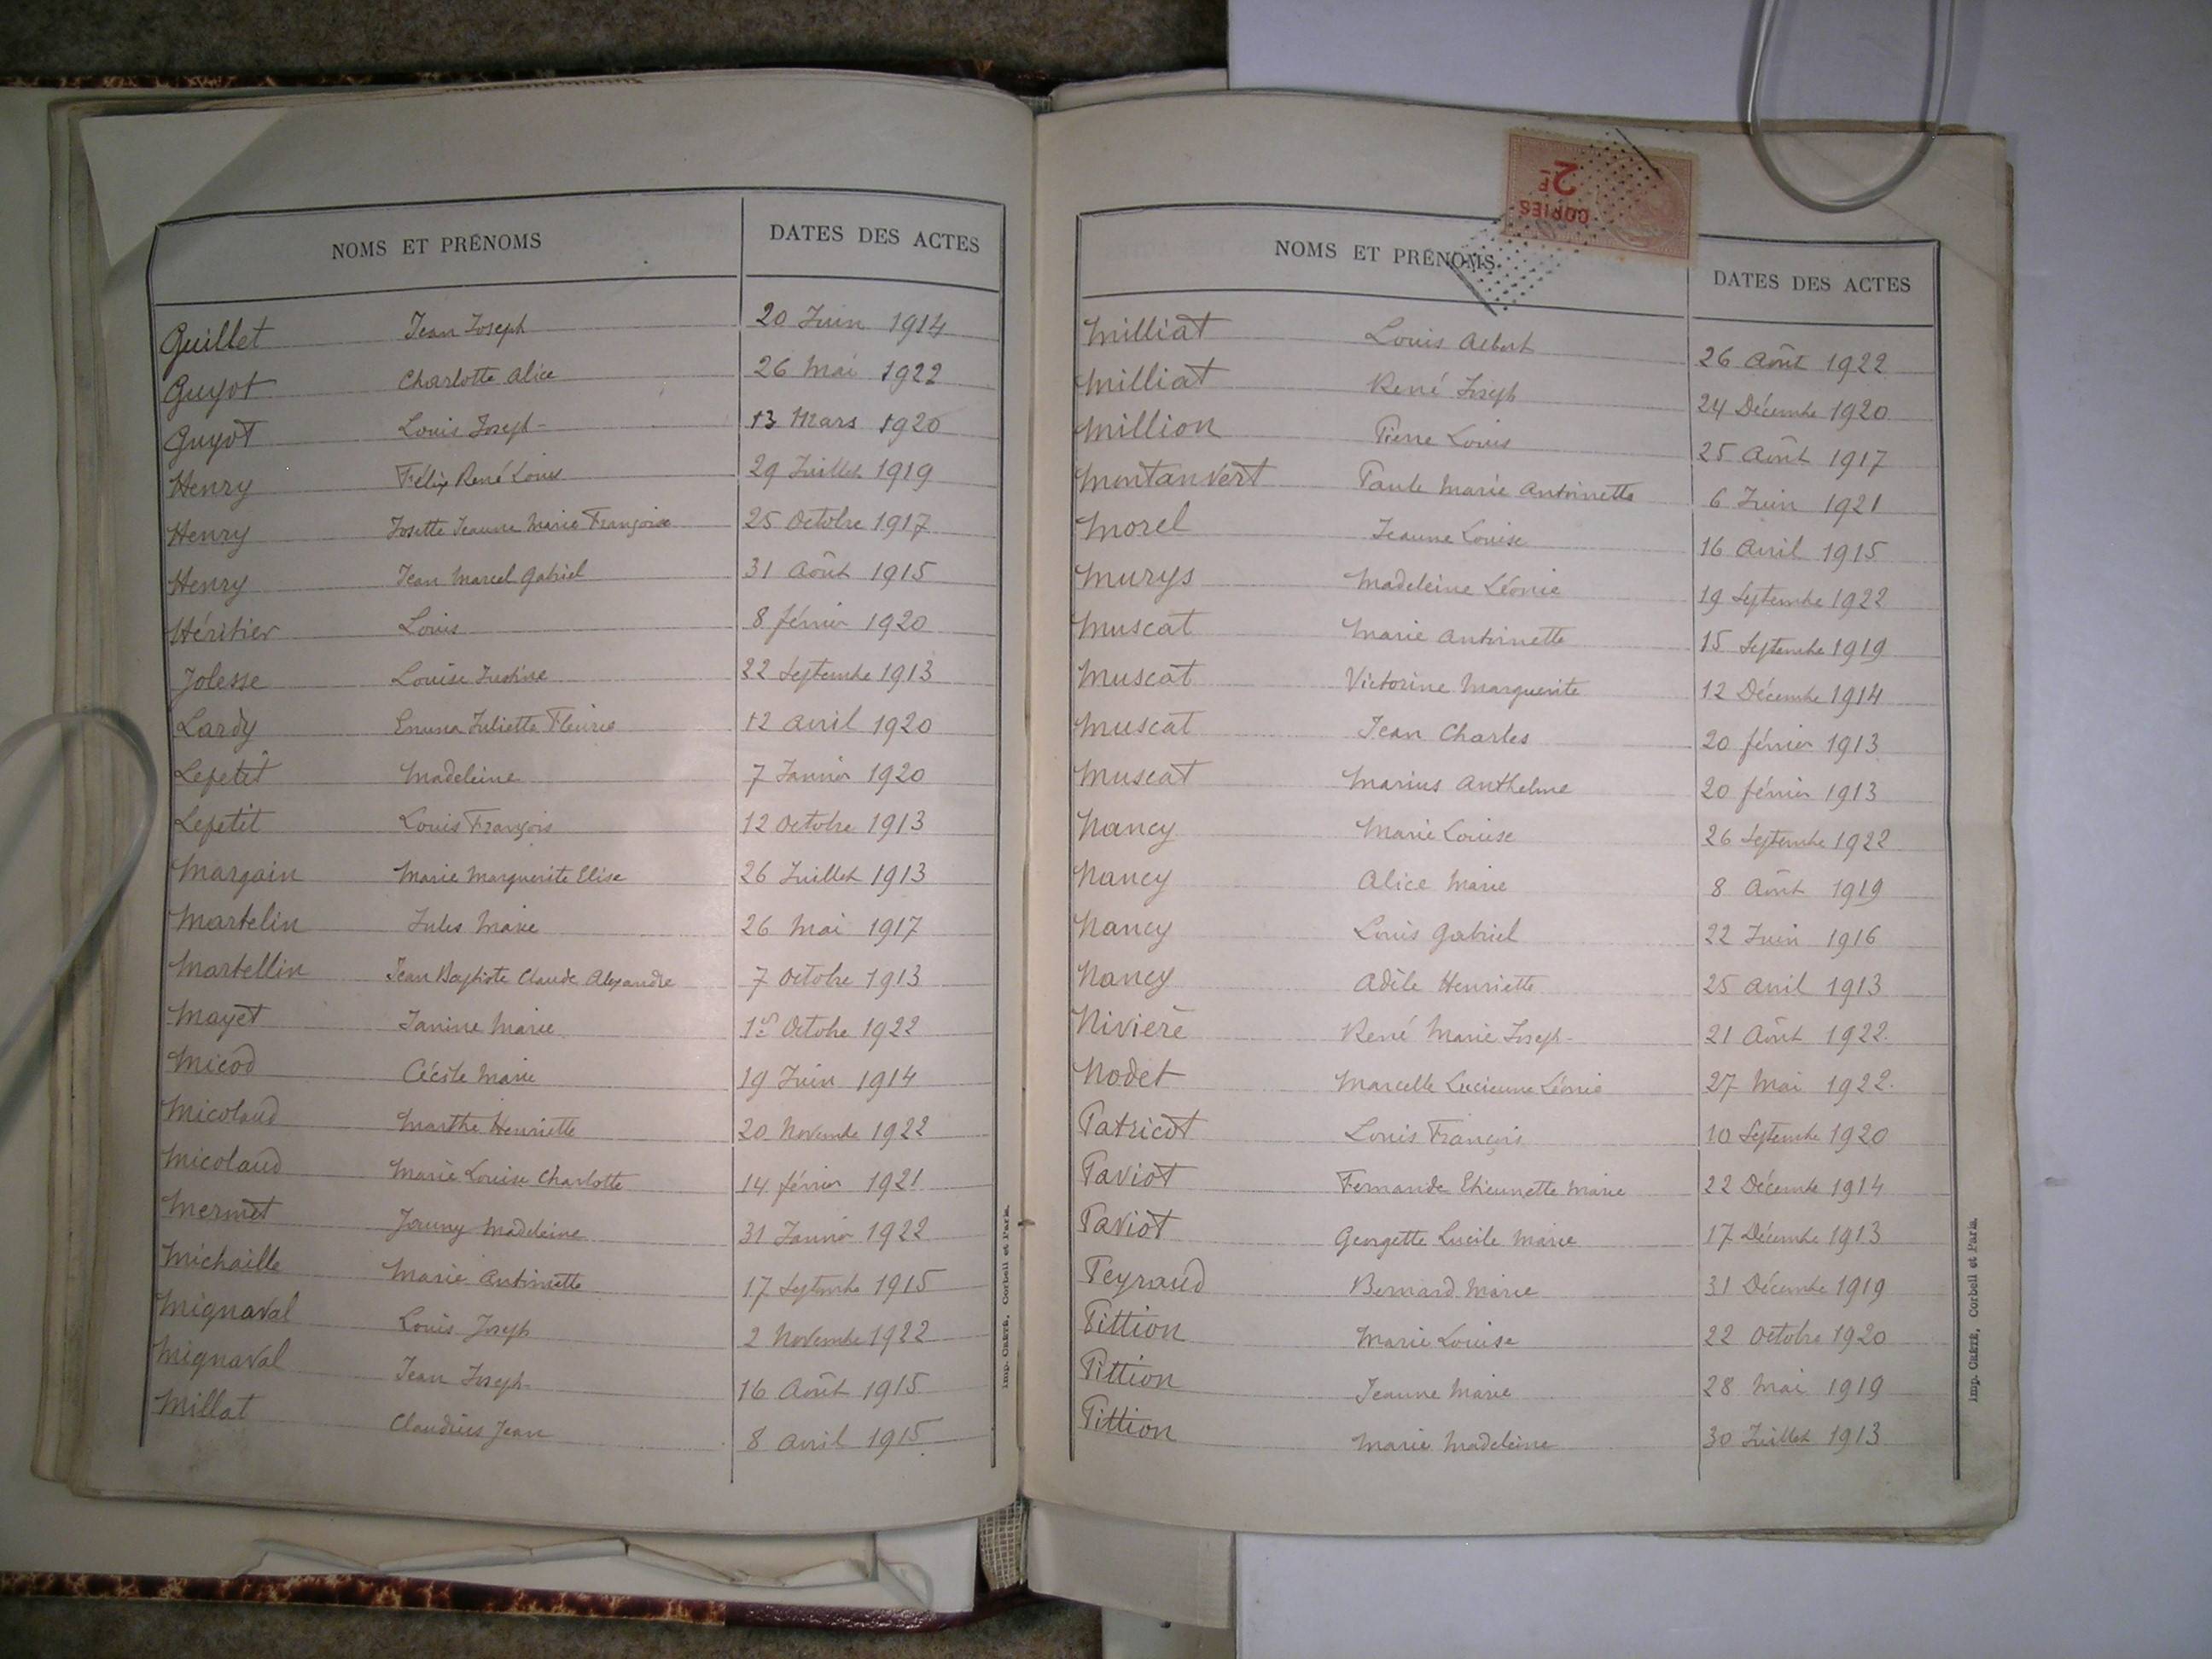 NOMS ET PRÉNOMS DATES DES ACTES
Guillet Jean Joseph 20 Juin 1914
Guyot Charlotte Alice 26 Mai 1922
Guyot Louis Joseph 13 Mars 1920
Henry Félix René Louis 29 Juillet 1919
Henry Josette Jeanne Marie Françoise 25 Octobre 1917
Henry Jean Marcel Gabriel 31 Août 1915
Héritier Louis 8 février 1920
Jolesse Louise Justine 22 Septembre 1913
Lardy Emma Juliette 12 Avril 1920
Lepetit Madeleine 7 Janvier 1920
Lepetit Louis François 12 Octobre 1913
Margain Marie Marguerite Elise 26 Juillet 1913
Martelin Jules Marie 26 Mai 1917
Martellin Jean Baptiste Claude Alexandre 7 Octobre 1913
Mayet Janine Marie 1er Octobre 1922
Micod Cécile Marie 19 Juin 1914
Micolaud Marthe Henriette 20 Novembre 1922
Micolaud Marie Louise Charlotte 14 février 1921
Mermet Jenny Madeleine 31 Janvier 1922
Michaille Marie Antoinette 17 Septembre 1915
Mignaval Louis Joseph 2 Novembre 1922
Mignaval Jean Joseph 16 Août 1915
Millat Claudius Jean 8 Avril 1915
Imp. CRÉTÉ, Corbeil et Paris.
COPIES
2F
NOMS ET PRÉNOMS DATES DES ACTES
Milliat Louis Albert 26 Août 1922
Milliat René Joseph 24 Décembre 1920
Million Pierre Louis 25 Août 1917
Montanvert Paule Marie Antoinette 6 Juin 1921
Morel Jeanne Louise 16 Avril 1915
Murys Madeleine Léonie 19 Septembre 1922
Muscat Marie Antoinette 15 Septembre 1919
Muscat Victorine Marguerite 12 Décembre 1914
Muscat Jean Charles 20 février 1913
Muscat Marius Anthelme 20 février 1913
Nancy Marie Louise 26 Septembre 1922
Nancy Alice Marie 8 Août 1919
Nancy Louis Gabriel 22 Juin 1916
Nancy Adèle Henriette 25 Avril 1913
Nivière René Marie Joseph 21 Août 1922.
Nodet Marcelle Lucienne Léonie 27 Mai 1922.
Patricot Louis François 10 Septembre 1920
Paviot Fernande Etiennette Marie 22 Décembre 1914
Paviot Georgette Lucile Marie 17 Décembre 1913
Peyraud Bernard Marie 31 Décembre 1919
Pittion Marie Louise 22 Octobre 1920
Pittion Jeanne Marie 28 Mai 1919
Pittion Marie Madeleine 30 Juillet 1913
Imp. CRÉTÉ, Corbeil et Paris.